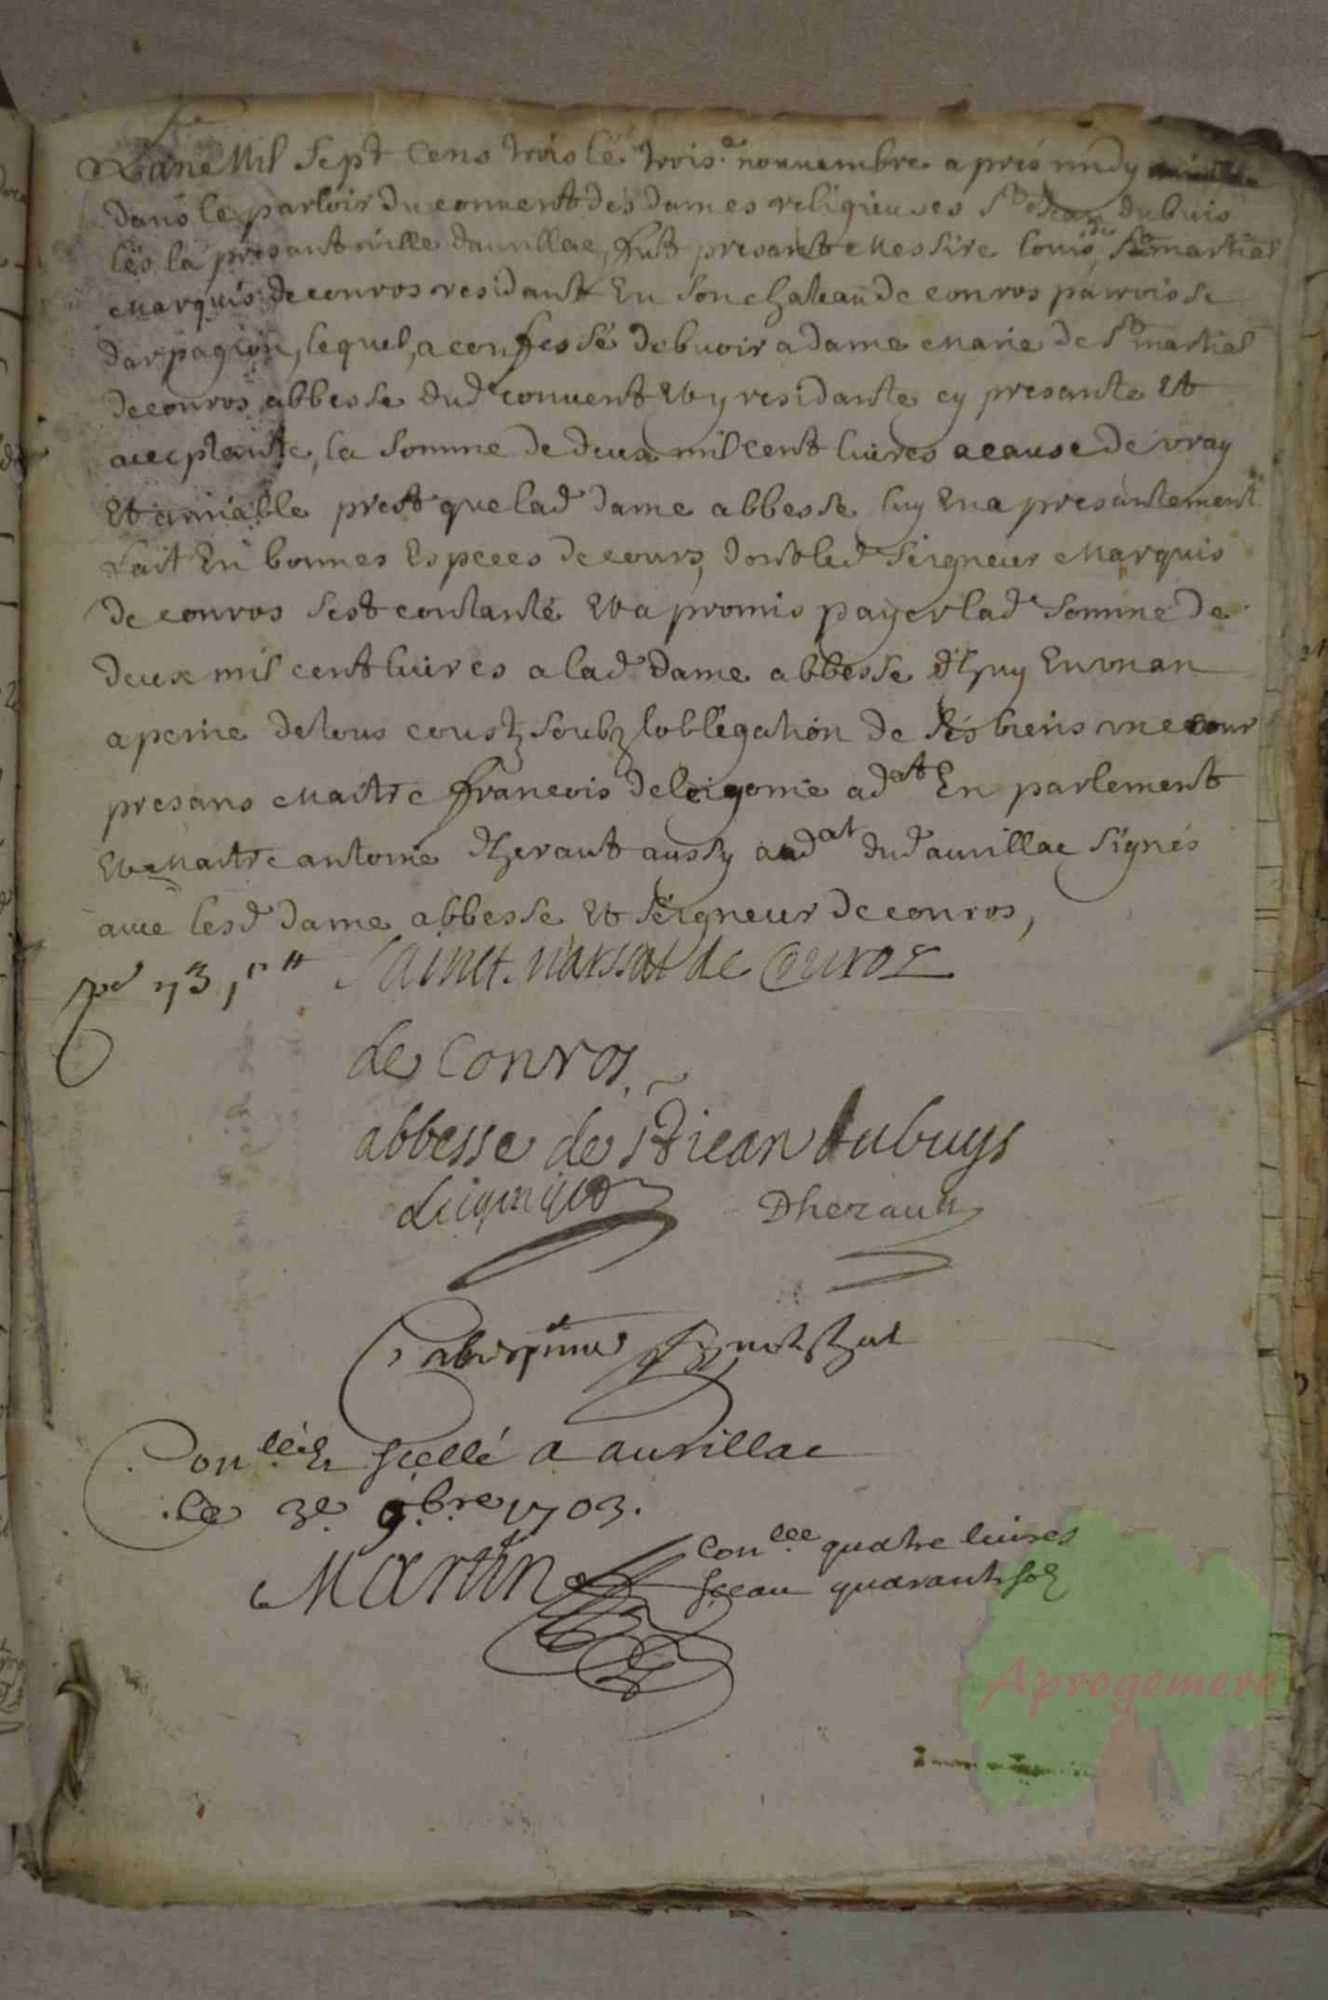 Lane Mil Sept Cens trois le trois.e nouuembre apres midy
dans le parloir du conuent des dames religieuses St Jean dubuis
les la presant ville daurillac, fut presant Messire louis de St martial
Marquis de conros residant En son chateau de conros parroisse
darpagion, lequel, a confessé debuoir a dame Marie de St martial
de conros abbesse dud conuent Et y residante cy presante Et
acceptante, la somme de deux mil cent liures a cause de vray
Et amiable prest que lad dame abbesse luy En a presantement
fait En bonnes Especes de cours, dont led seigneur Marquis
de conros sest contanté Et a promis payer lad somme de
deux mil cent liures a lad dame abbesse d'huy En vn an
a peine de tous coustz soubz lobligation de ses biens
presans Maitre francois deleigonie adat En parlement
Et Maitre antoine dheraut aussy aadat dud aurillac signés
auec lesd dame abbesse Et seigneur de conros,
Sainct. Marsal de Conros
de Conros
abbesse de St iean dubuys
Dheraut
Conllé & scellé a aurillac
le 3e 9.bre 1703.
Martin
Conllee quatre liures
sceau quarante solz
Aprogemere